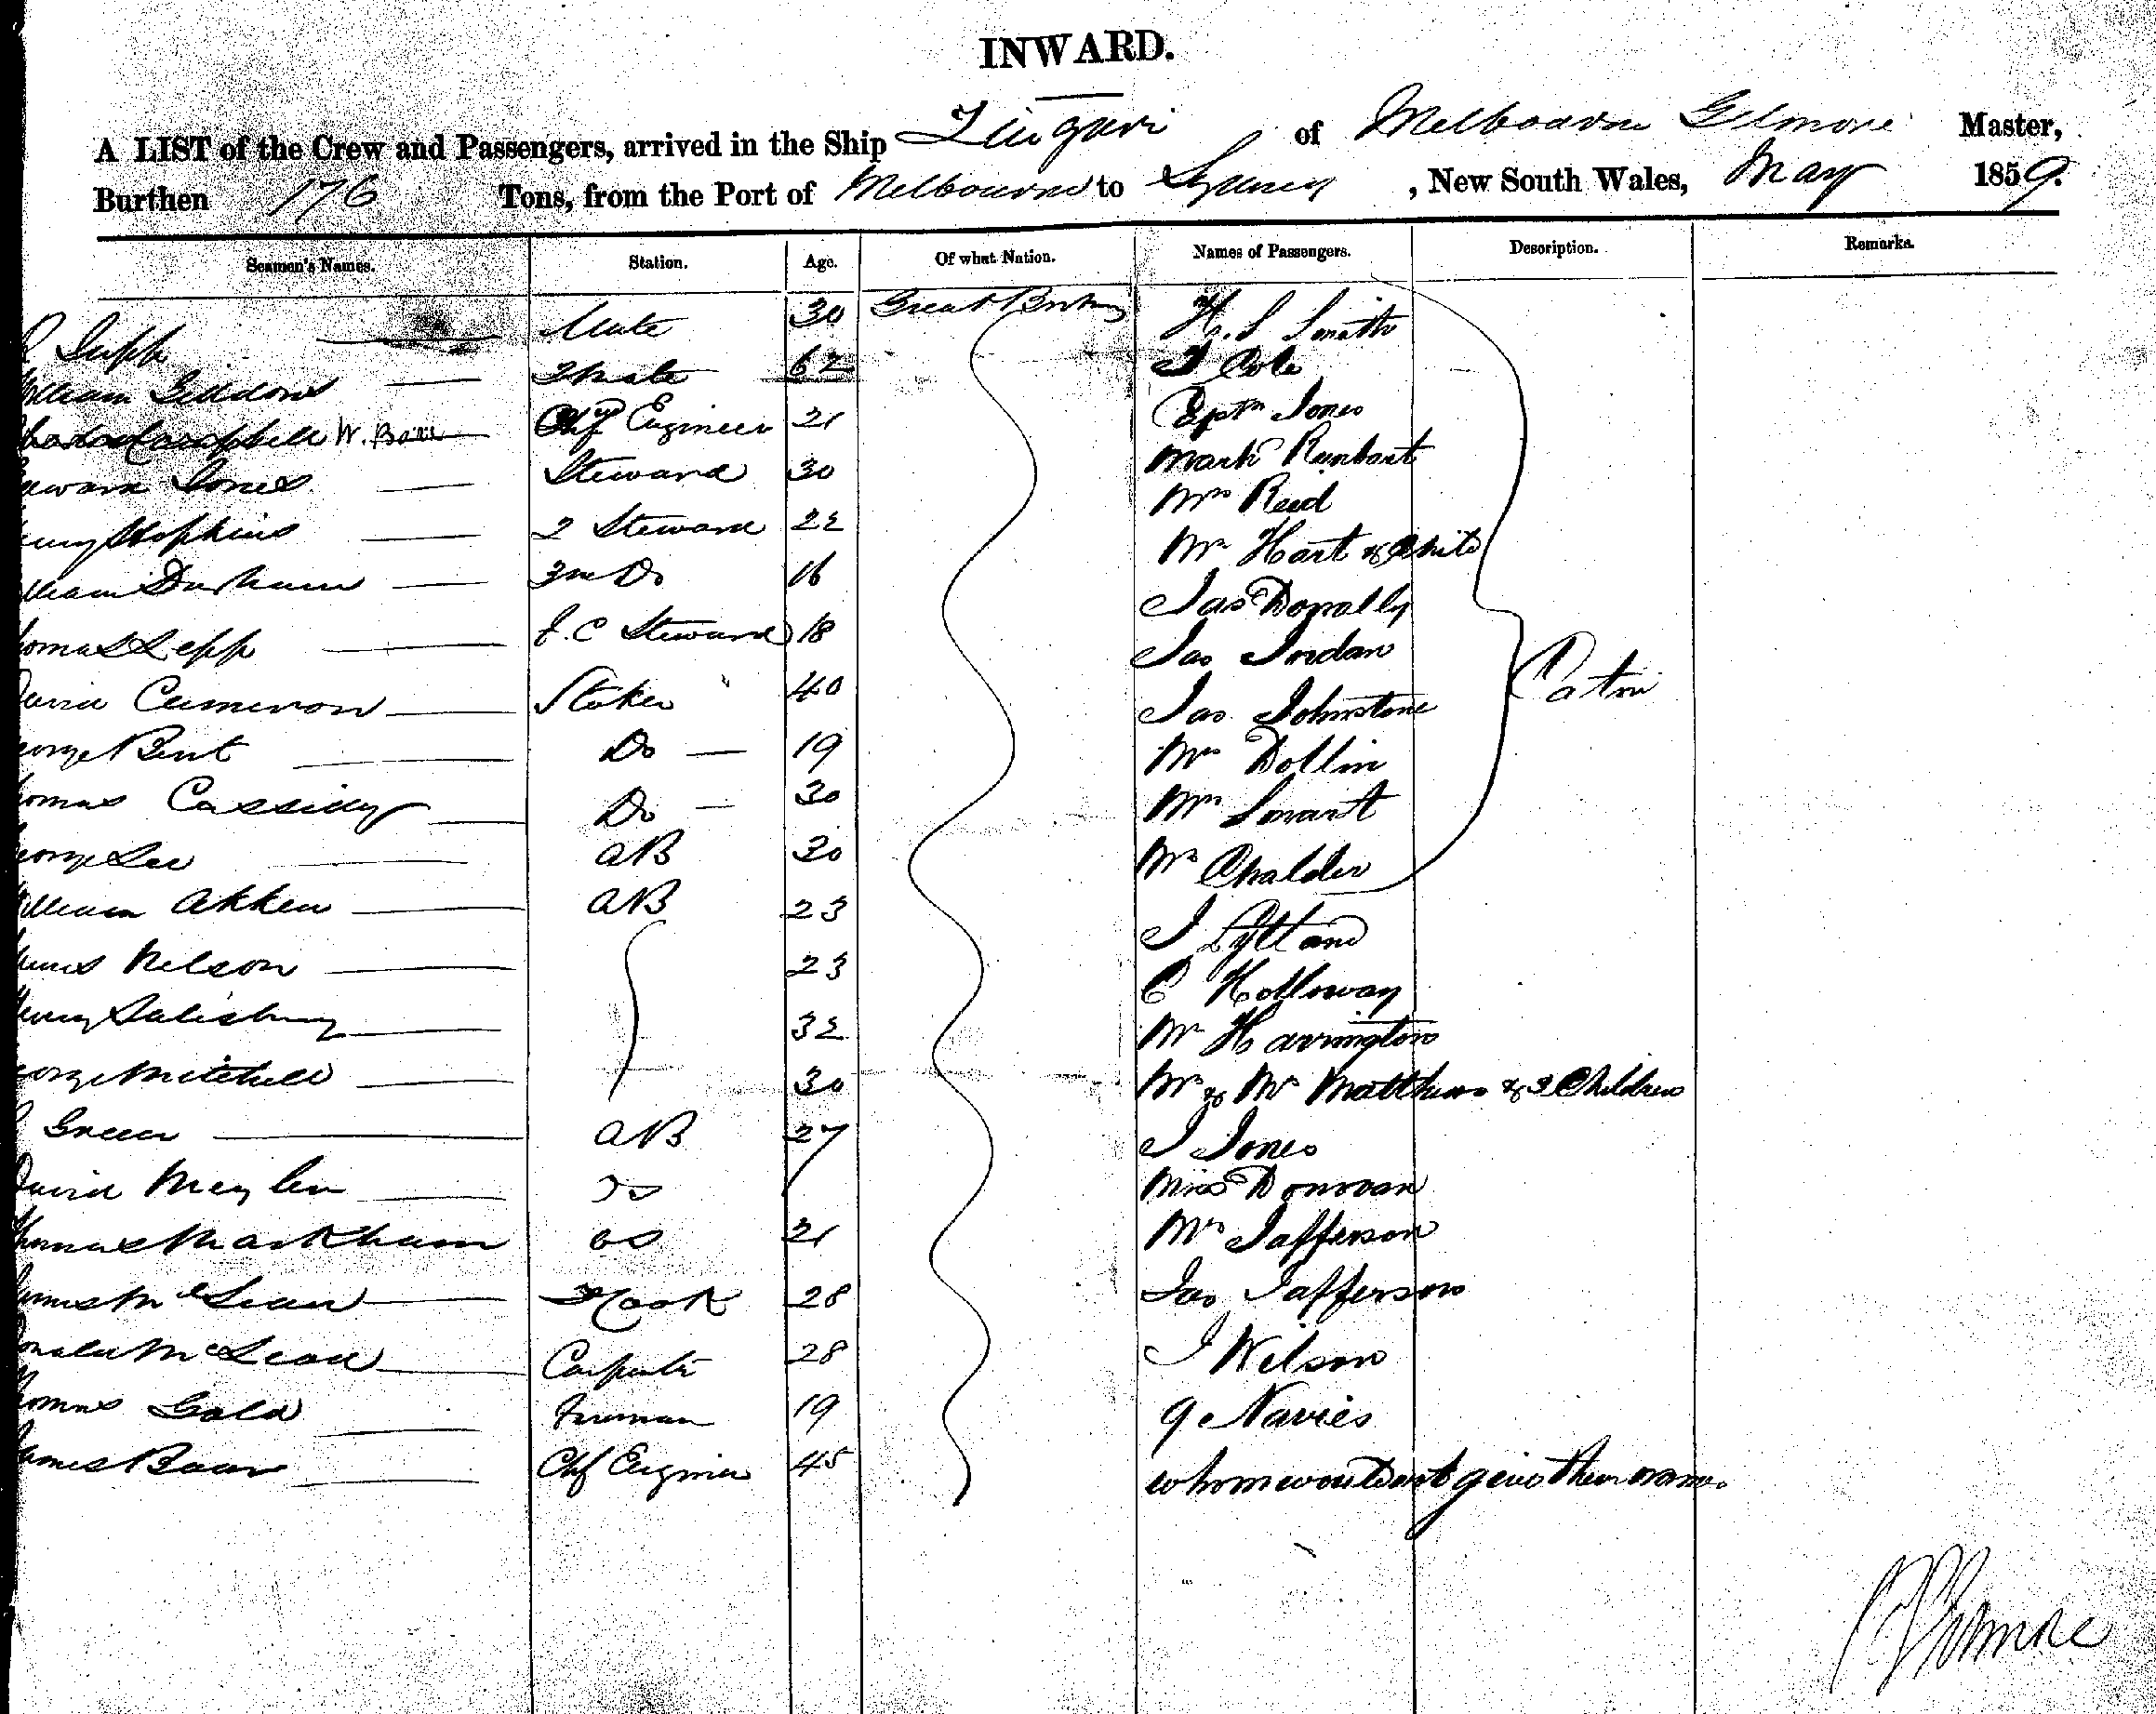 INWARD.
A LIST of the Crew and Passengers, arrived in the Ship Zingari of Melbourne Gilmore Master,
Burthen 176 Tons, from the Port of Melbourne to Sydney, New South Wales, May 1859.
Seamen's Names. Station. Age. Of what Nation. Names of Passengers. Description. Remarks.
Mate 30 Great Britain H. S Smith
William Geddons 2 Mate 62 J Cole
Campbell W. Barr Chf Engineer 21 Captn Jones
Edward Jones Steward 30 Mark
Henry Hopkins 2 Steward 22 Mrs Reed
William Durham 3rd Do 16 Mrs Hart & Child
Thomas Lepp F.C Steward 18 Jas Donally
David Cameron Stoker 40 Jas Jordan
George Bent Do 19 Jas Johnstone
Thomas Cassidy Do 30 Mrs Dollin
George Lee AB 30 Mrs Smart
William Akken AB 23 Mrs Chalder
James Nelson 23 J
Henry Salisbury 32 C Holloway
George Mitchell 30 Mr Harrington
Green AB 27 Mr & Mrs Matthews & 3 Children
David J Jones
Thomas Markham OS 21 Miss Donovan
James McLean Cook 28 Mrs Jafferson
Donald McLean Carpenter 28 Jas Jafferson
Thomas Gold Fireman 19 J Wilson
James Baar Chf Engineer 45 9 Navies
whom would not give their names